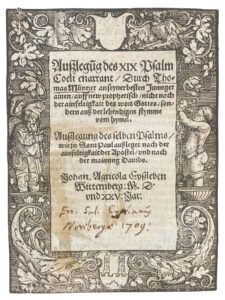 Außlegūg des XIX Psalm
Celi enarrant / Durch Tho-
mas Müntzer an seyner besten Junnger
ainen / auff new prophetisch / nicht nach
der ainfeltigkait des wort Gottes / son-
dern auß der lebendigen stymme
vom hymel.
Außlegung des selben Psalms /
wie jn Sant Paul außleget nach der
ainfeltigkait der Apostel / und nach
der mainung Davids.
Johan. Agricola Eyßleben
Wittemberg. M. D
vnd XXV. Jar.
Ern. Sal. Cypriani
Noriberga 1709.